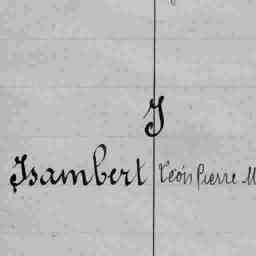 I
Isambert Léon Pierre M